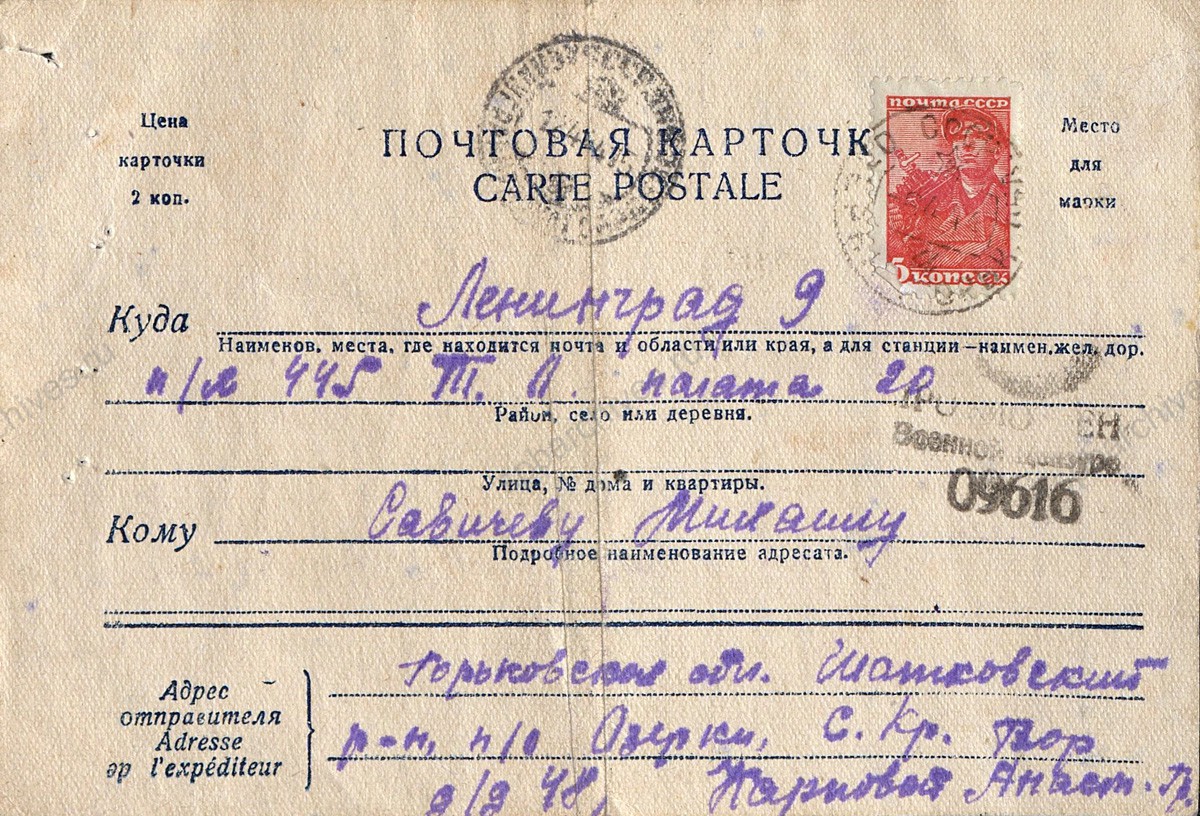 Цена
карточки
2 коп.
ПОЧТОВАЯ КАРТОЧК
CARTE POSTALE
ПОЧТА СССР
5 КОПЕЕК
Место
для
марки
Куда Ленинград 9
Наименов. места, где находится почта и области или края, а для станции—наимен. жел. дор.
п/я 445 Т. П. палата 20
Район, село или деревня.
Военной Цензурой
09616
Улица, № дома и квартиры.
Кому Савичеву Михаилу
Подробное наименование адресата.
Адрес
отправителя
Adresse
эр l'expéditeur
Горьковская обл. Шатковский
р-н, п/о Озерки, С. Кр. Бор
д/д 48, Карповой Анаст. Гр.